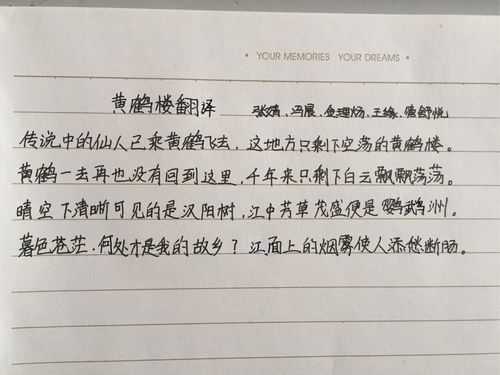 • YOUR MEMORIES YOUR DREAMS •
黄鹤楼翻译 张倩、冯晨、
传说中的仙人已乘黄鹤飞去，这地方只剩下空荡的黄鹤楼。
黄鹤一去再也没有回到这里，千年来只剩下白云飘飘荡荡。
晴空下清晰可见的是汉阳树，江中芳草茂盛便是鹦鹉洲。
暮色苍茫，何处才是我的故乡？江面上的烟雾使人添愁断肠。